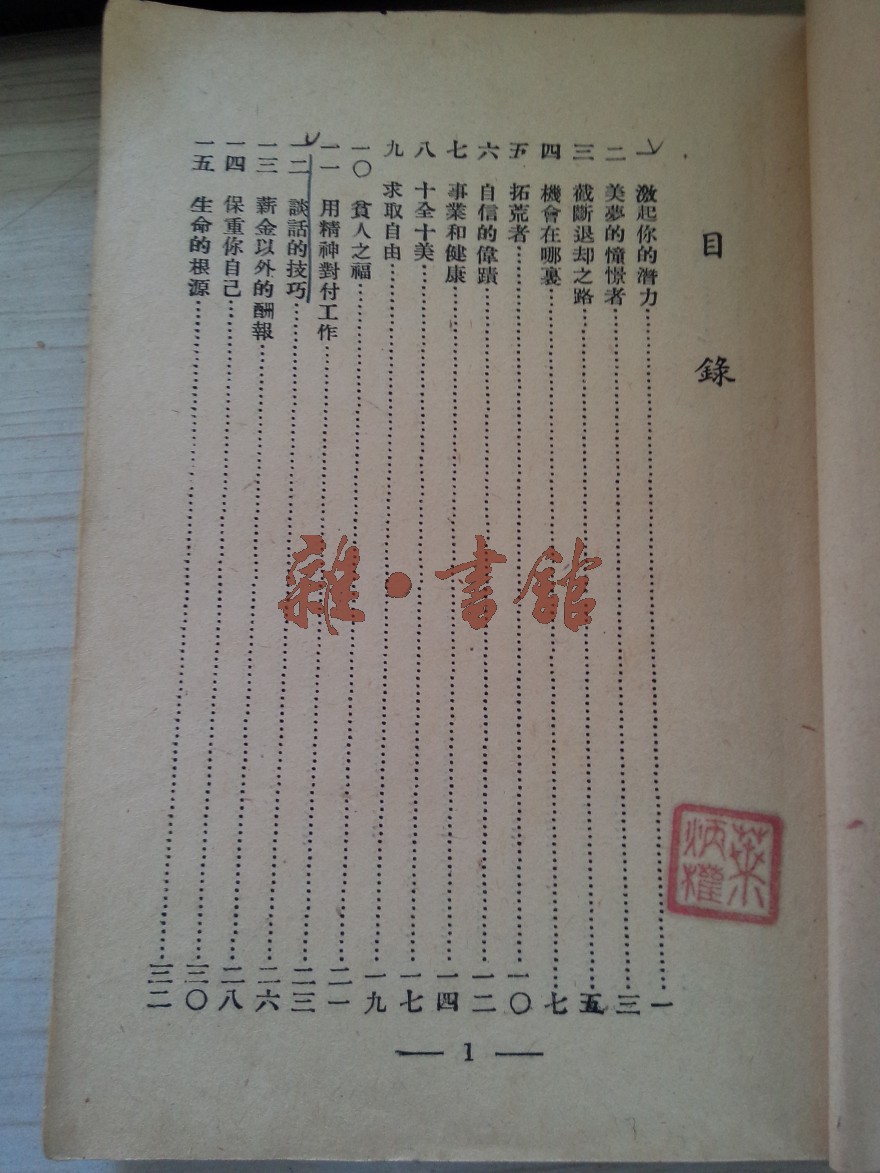 目錄
一 激起你的潛力 一
二 美夢的憧憬者 三
三 截斷退却之路 五
四 機會在哪裏 七
五 拓荒者 一〇
六 自信的偉蹟 一二
七 事業和健康 一四
八 十全十美 一七
九 求取自由 一九
一〇 貧人之福 二一
一一 用精神對付工作 二三
一二 談話的技巧 二六
一三 薪金以外的酬報 二八
一四 保重你自己 三〇
一五 生命的根源 三二
— 1 —
雜·書館
葉炳權